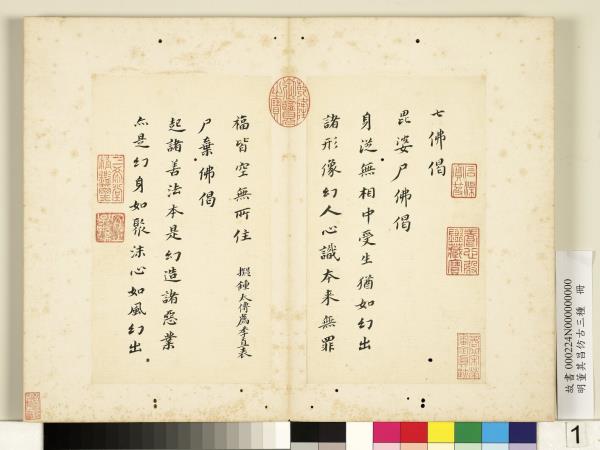 七佛偈
毘婆尸佛偈
身從無相中受生猶如幻出
諸形像幻人心識本來無罪
福皆空無所住
擬鍾太傅薦季直表
尸棄佛偈
起諸善法本是幻造諸惡業
亦是幻身如聚沫心如風幻出
三希堂精鑑璽
宜子孫
乾隆御覽之寶
故書 000224N000000000
明董其昌仿古三種 冊
1